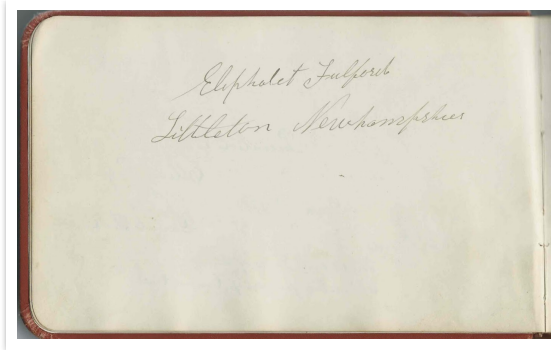 Eliphalet Fulford
Littleton Newhampshier